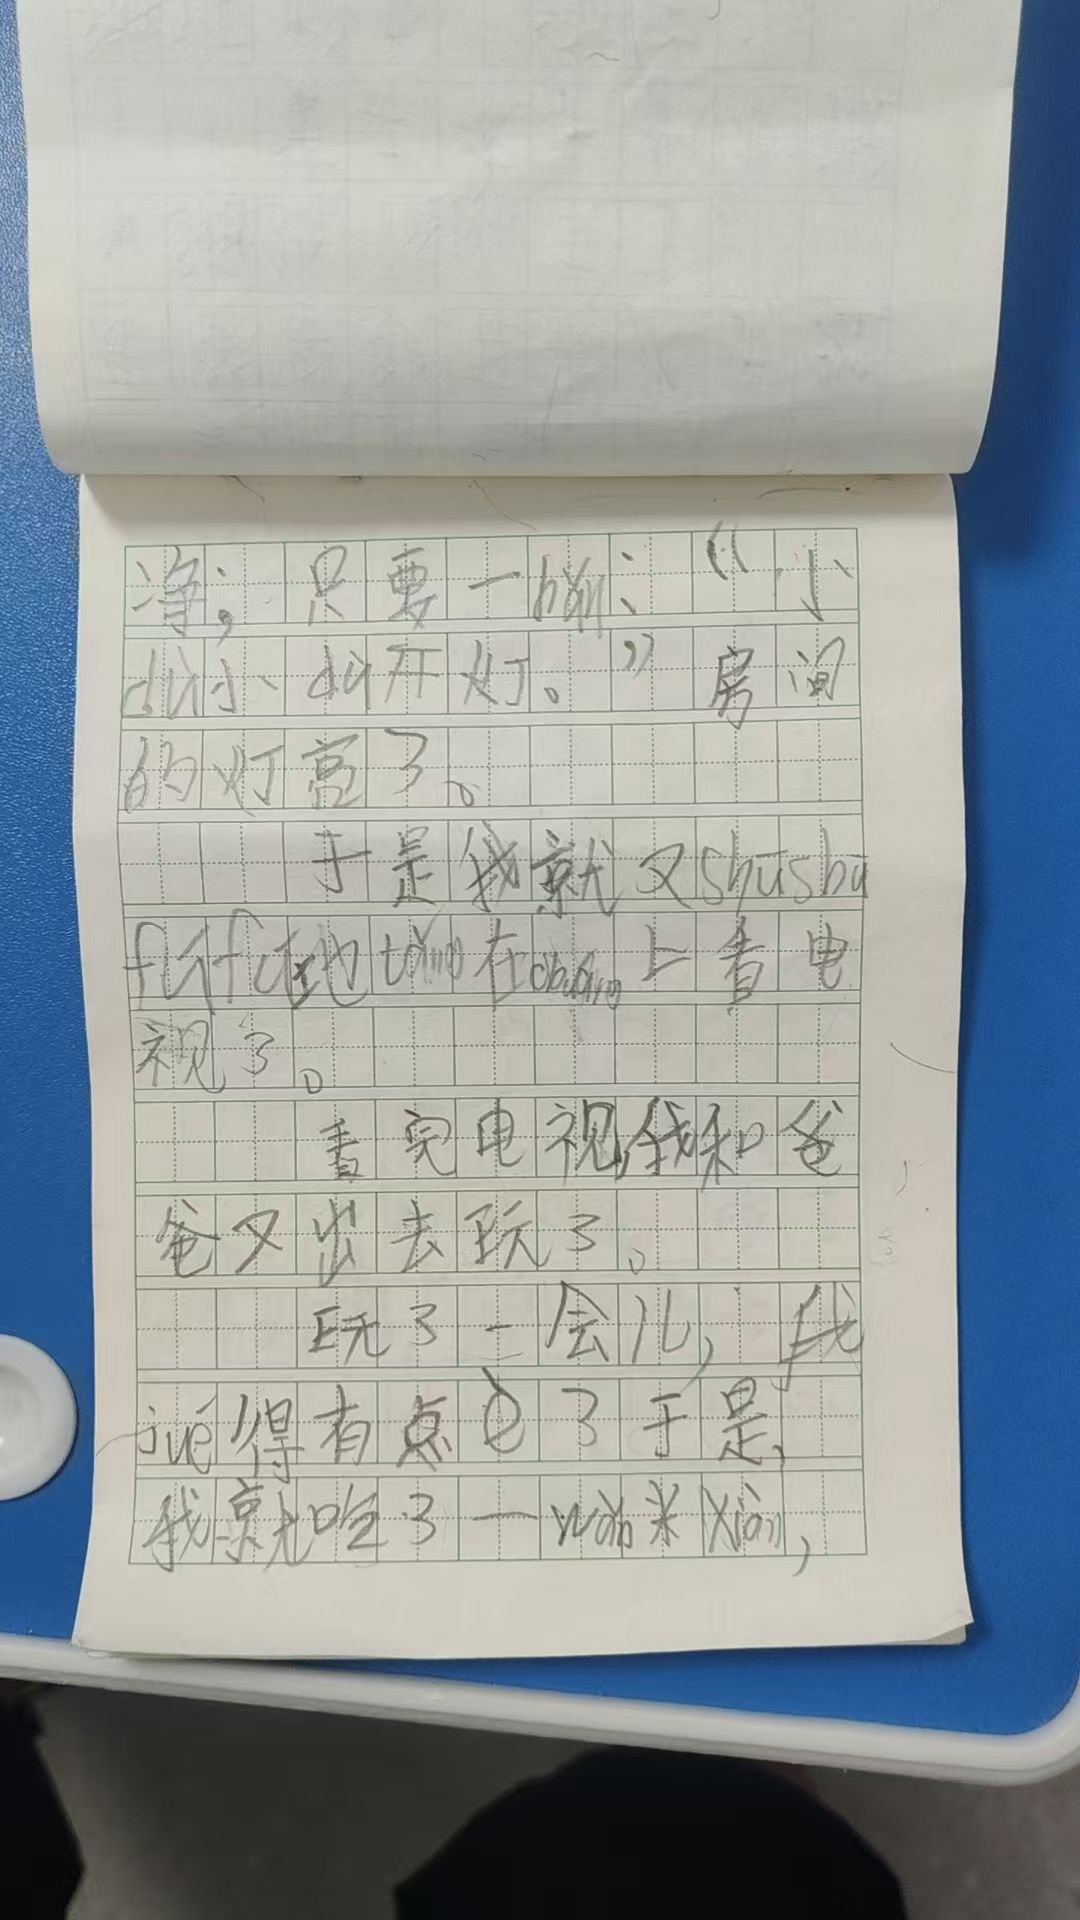 净；只要一hǎn：“小
dù小dù开灯。”房间
的灯亮了。
于是我就又shūshu
fúfu地tǎng在chuáng上看电
视了。
看完电视，我和爸
爸又出去玩了。
玩了一会儿，我
jué得有点了于是，
我就吃了一wǎn米xiàn，